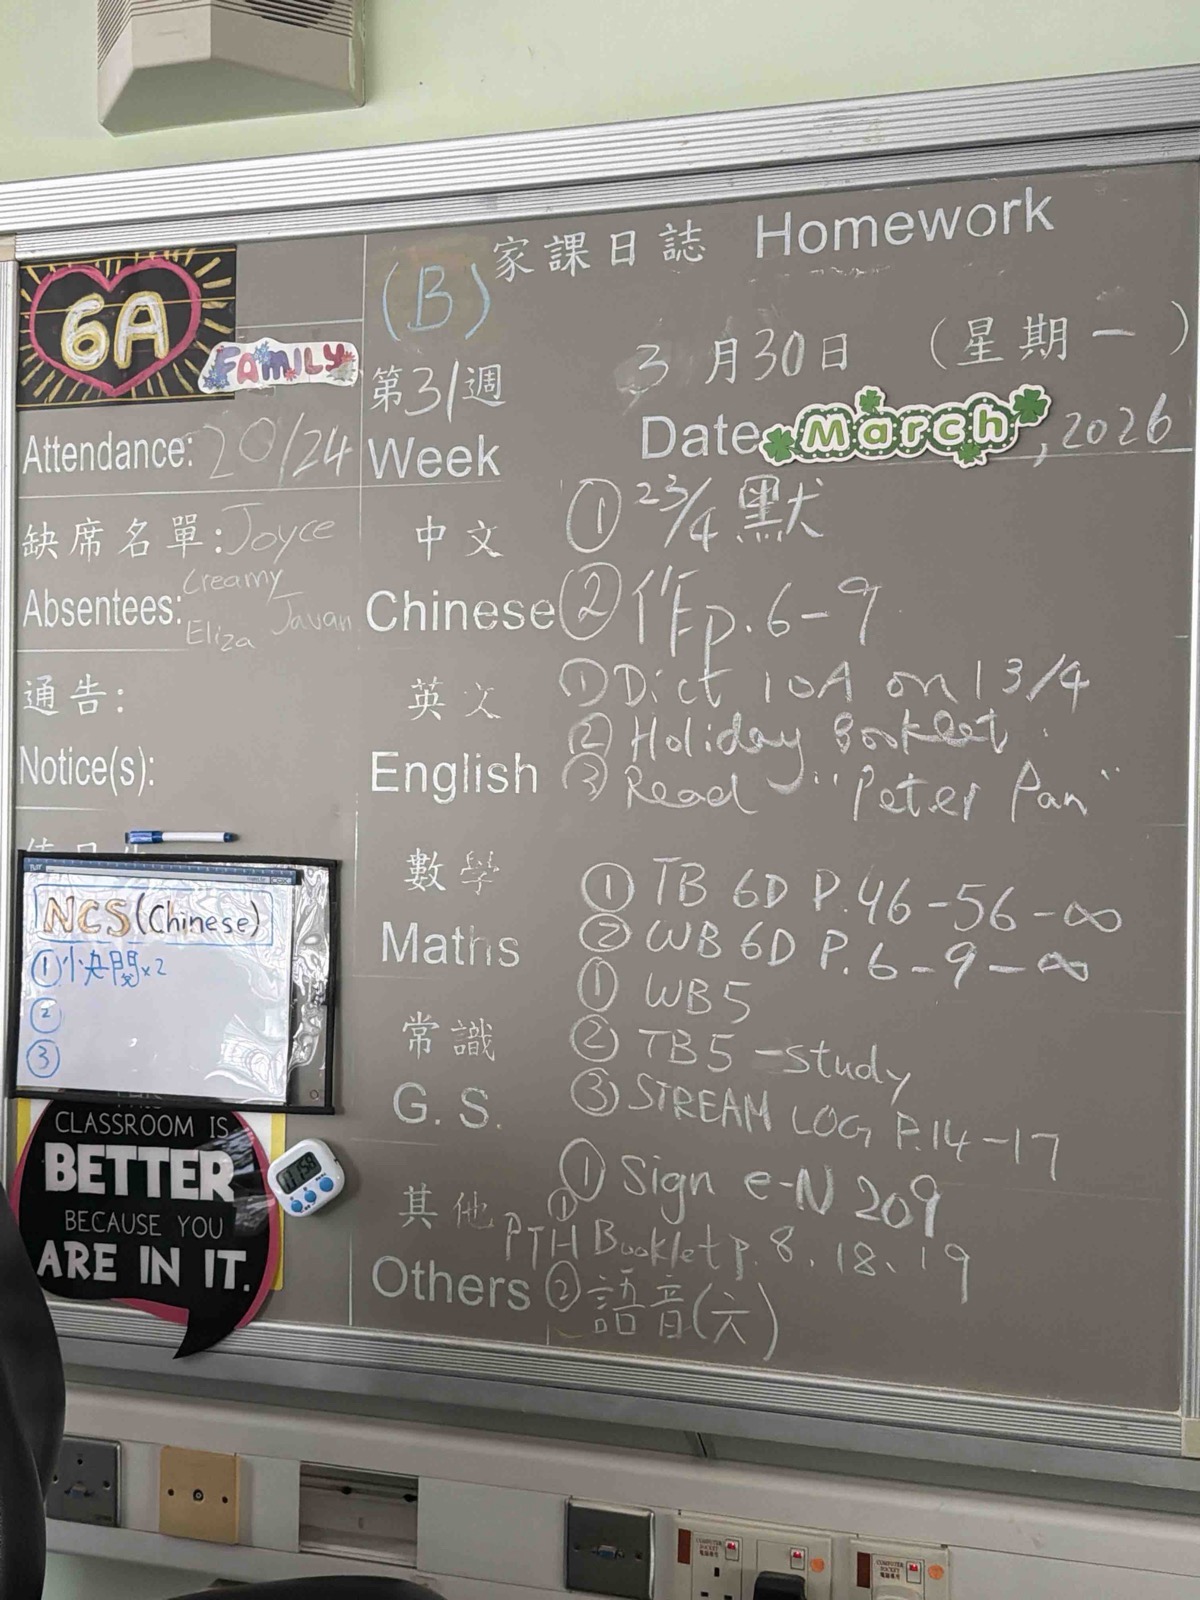 6A
FAMILY
Attendance: 20/24
缺席名單: Joyce
Creamy
Absentees: Javan
Eliza
通告:
Notice(s):
NCS (Chinese)
① 快閱x2
②
③
CLASSROOM IS
BETTER
BECAUSE YOU
ARE IN IT.
(B) 家課日誌 Homework
第31週 3月30日 (星期一)
Week Date March, 2026
中文 ① 23/4 默
Chinese ② 作p.6-9
英文 ① Dict 10A on 13/4
② Holiday Booklet
English ③ Read "Peter Pan"
數學 ① TB 6D P.46-56-∞
Maths ② WB 6D P.6-9-∞
① WB5
常識 ② TB5 -study
G.S. ③ STREAM LOG P.14-17
① Sign e-N 209
其他 ① PTH Booklet p.8、18、19
Others ② 語音(六)